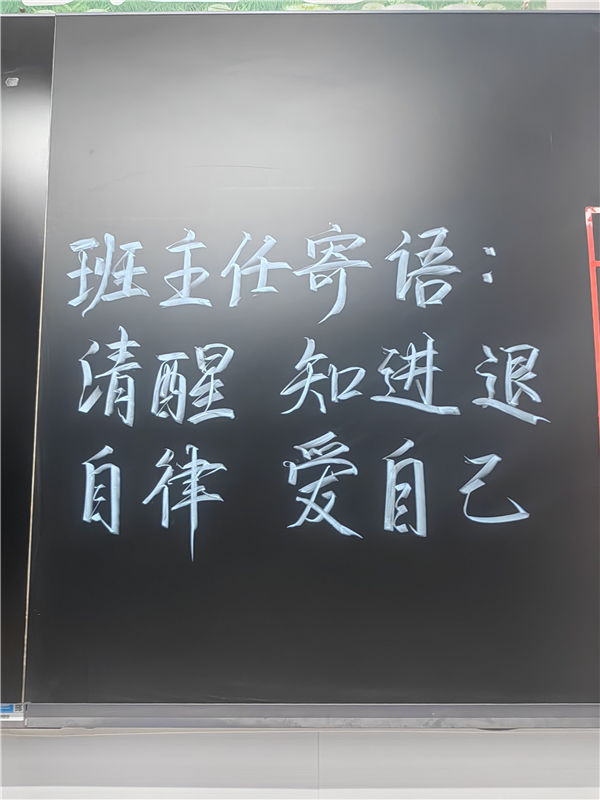 班主任寄语:
清醒 知进退
自律 爱自己